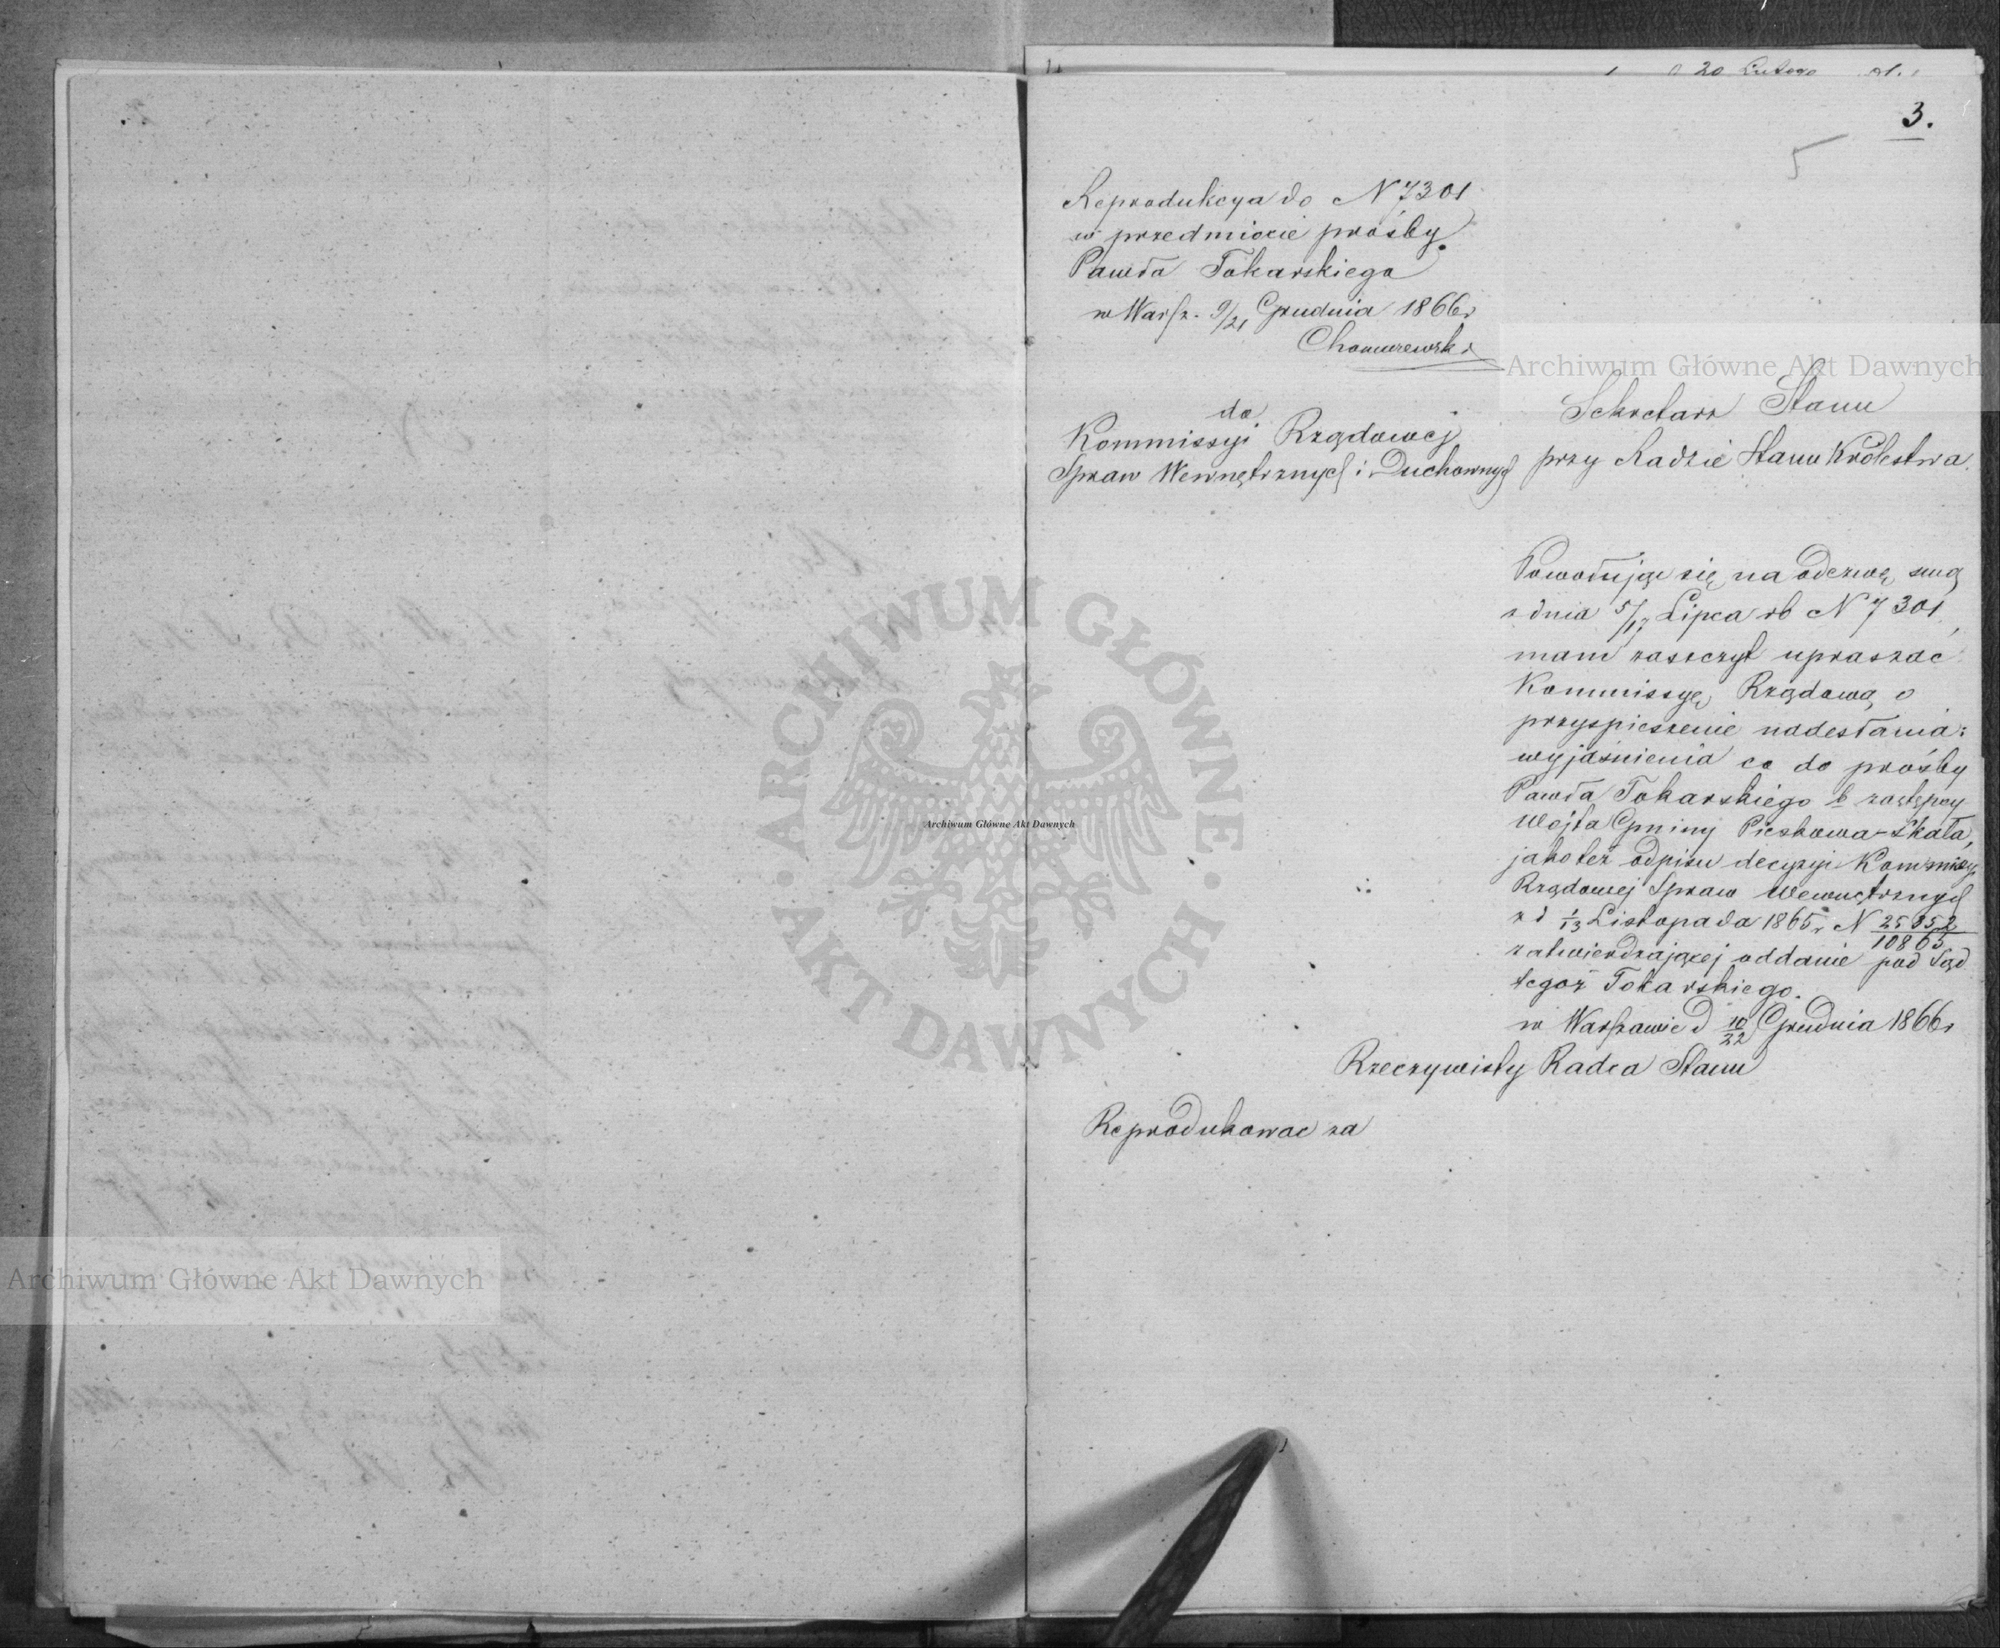 20 Lutego
3.
5
Reprodukcya do N 7301
w przedmiocie prośby
Pawła Tokarskiego
w Warsz. 9/21 Grudnia 1866 r
do
Kommissyi Rządowej
Spraw Wewnętrznych i Duchownych
Sekretarz Stanu
przy Radzie Stanu Królestwa
Powołując się na odezwę swą
z dnia 5/17 Lipca rb N 7301,
mam zaszczyt upraszać
Kommissyę Rządową o
przyspieszenie nadesłania
wyjaśnienia co do prośby
Pawła Tokarskiego b zastępcy
Wójta Gminy Pieskowa-Skała,
jakoteż odpisu decyzyi Kommissyi
Rządowej Spraw Wewnętrznych
z d 1/13 Listopada 1865 r N 25352/10865
zatwierdzającej oddanie pod Sąd
tegoż Tokarskiego.
w Warszawie d 10/22 Grudnia 1866 r
Rzeczywisty Radca Stanu
Reprodukować za
Archiwum Główne Akt Dawnych
Archiwum Główne Akt Dawnych
Archiwum Główne Akt Dawnych
ARCHIWUM GŁÓWNE
AKT DAWNYCH